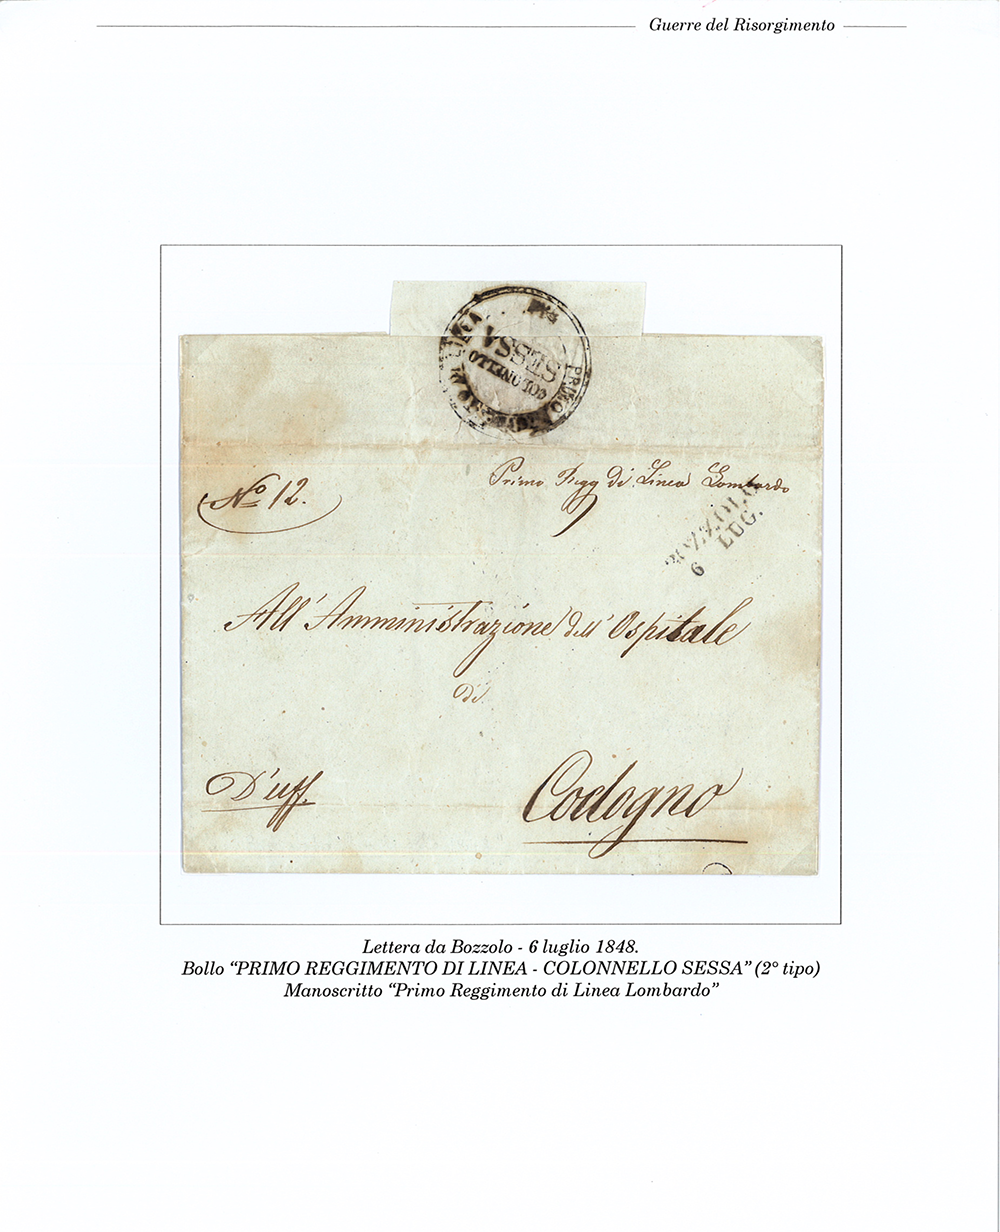 Guerre del Risorgimento
PRIMO REGGIMENTO DI LINEA
COLONNELLO
SESSA
No 12.
Primo Regg di Linea Lombardo
BOZZOLO
6 LUG.
All'Amministrazione dell'Ospitale
di
D'uff.
Codogno
Lettera da Bozzolo - 6 luglio 1848.
Bollo “PRIMO REGGIMENTO DI LINEA - COLONNELLO SESSA” (2° tipo)
Manoscritto “Primo Reggimento di Linea Lombardo”